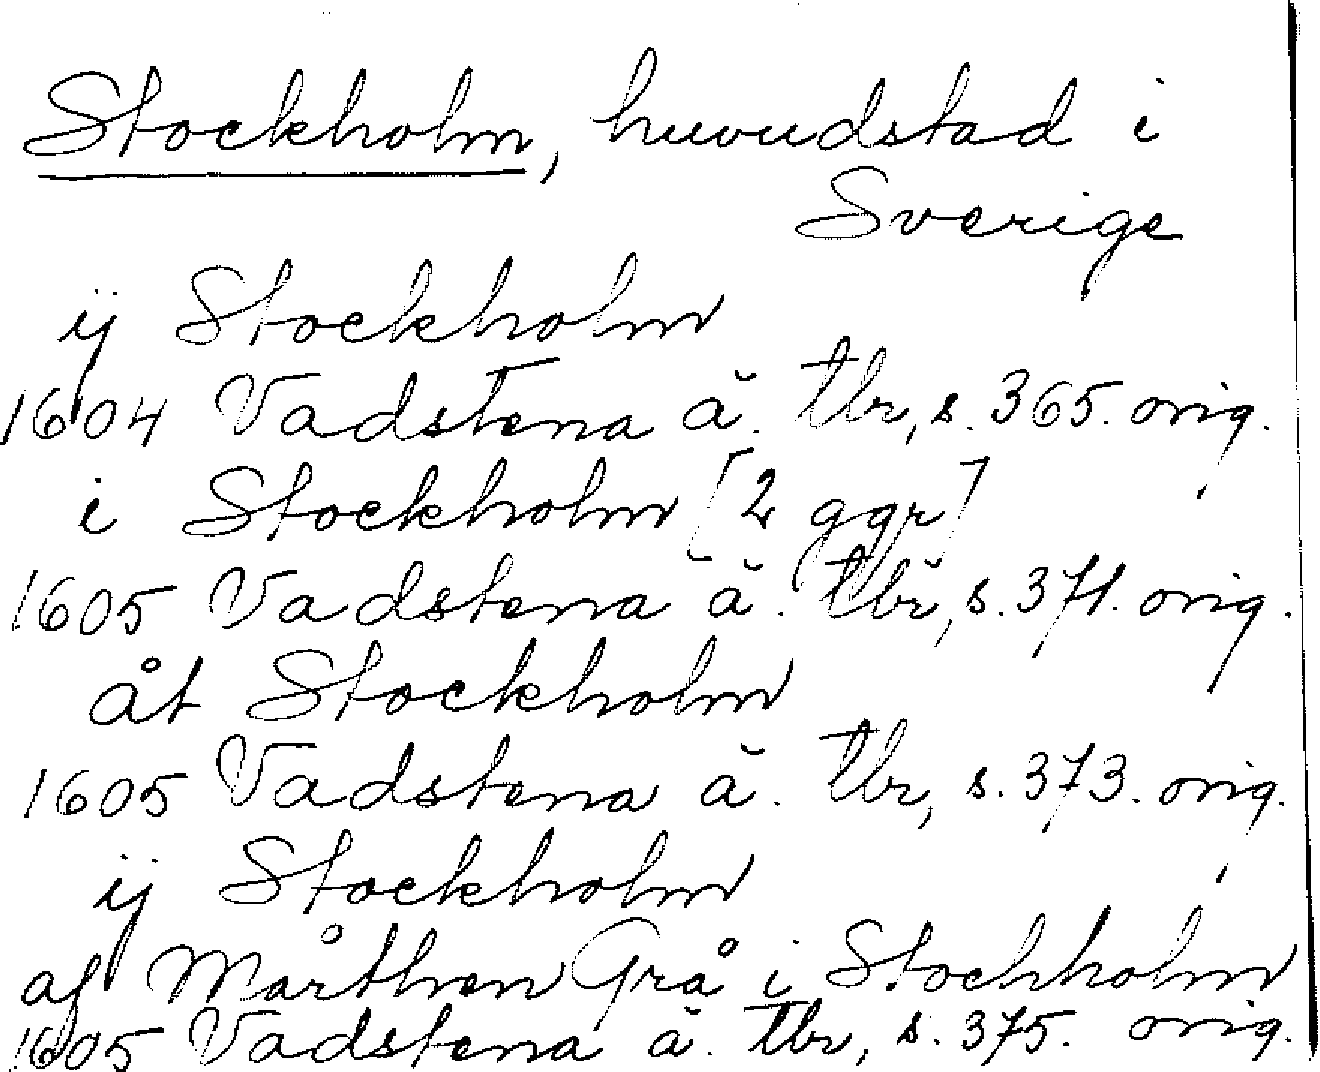 Stockholm, huvudstad i
Sverige
ij Stockholm
1604 Vadstena ä. tbr, s. 365. orig.
i Stockholm [2 ggr]
1605 Vadstena ä. tbr, s. 371. orig.
åt Stockholm
1605 Vadstena ä. tbr, s. 373. orig.
ij Stockholm
af Mårthen Grå i Stochholm
1605 Vadstena ä. tbr, s. 375. orig.